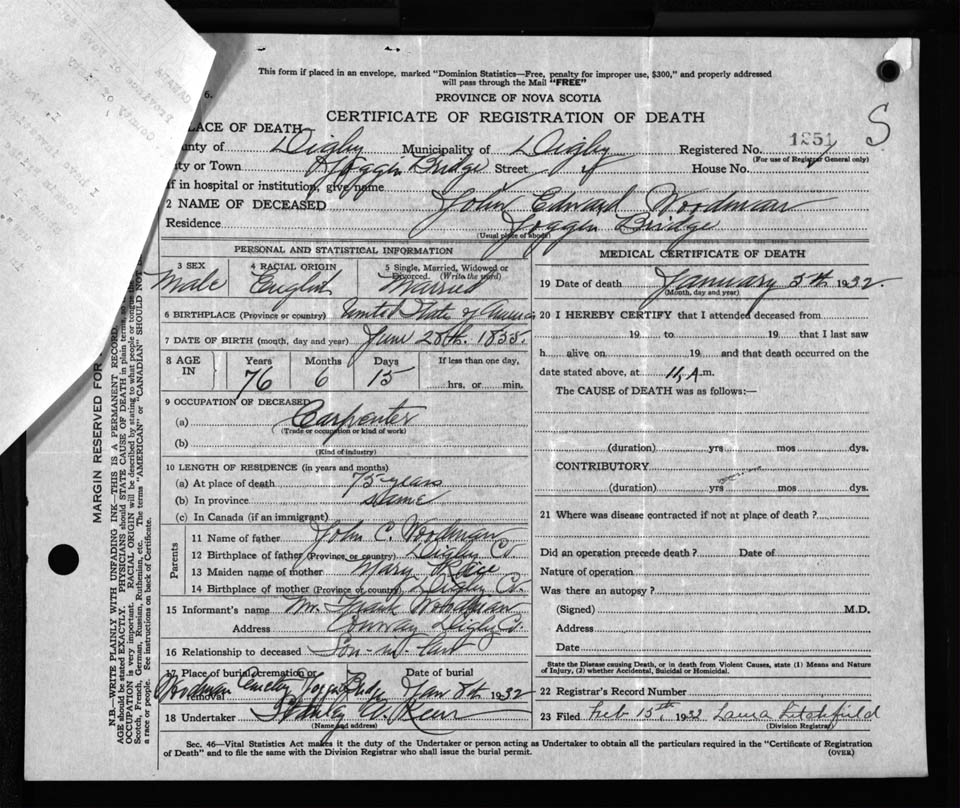 This form if placed in an envelope, marked "Dominion Statistics—Free, penalty for improper use, $300," and properly addressed
will pass through the Mail "FREE"
6.
PROVINCE OF NOVA SCOTIA
CERTIFICATE OF REGISTRATION OF DEATH
S
LACE OF DEATH
1251
unty of Digby Municipality of Digby Registered No.
(For use of Registrar General only)
ity or Town Joggin Bridge Street House No.
If in hospital or institution, give name
2 NAME OF DECEASED John Edward Woodman
Residence Joggin Bridge
(Usual place of abode)
PERSONAL AND STATISTICAL INFORMATION
3 SEX 4 RACIAL ORIGIN 5 Single, Married, Widowed or Divorced. (Write the word)
Male English Married
6 BIRTHPLACE (Province or country) United State of America
7 DATE OF BIRTH (month, day and year) June 20th 1855.
8 AGE IN Years Months Days If less than one day,
76 6 15 hrs, or min.
9 OCCUPATION OF DECEASED
(a) Carpenter
(Trade or occupation or kind of work)
(b)
(Kind of industry)
10 LENGTH OF RESIDENCE (in years and months)
(a) At place of death 75 years
(b) In province same
(c) In Canada (if an immigrant)
Parents
11 Name of father John C. Woodman
12 Birthplace of father (Province or country) Digby Co
13 Maiden name of mother Mary
14 Birthplace of mother (Province or country) Digby Co.
15 Informant's name Mr. Frank Woodman
Address Conway Digby Co.
16 Relationship to deceased Son-in-law
17 Place of burial, cremation or removal Date of burial
Woodman Cemetery Joggin Bridge Jan 8th 1932
18 Undertaker Stanley
(Name and address)
MEDICAL CERTIFICATE OF DEATH
19 Date of death January 5th 1932.
(Month, day and year)
20 I HEREBY CERTIFY that I attended deceased from
19 to 19 that I last saw
h alive on 19 and that death occurred on the
date stated above, at 11, A.m.
The CAUSE of DEATH was as follows:—
(duration) yrs mos dys.
CONTRIBUTORY
(duration) yrs mos dys.
21 Where was disease contracted if not at place of death?
Did an operation precede death? Date of
Nature of operation
Was there an autopsy?
(Signed) M.D.
Address
Date
State the Disease causing Death, or in death from Violent Causes, state (1) Means and Nature
of Injury, (2) whether Accidental, Suicidal or Homicidal.
22 Registrar's Record Number
23 Filed Feb 15th 1932 Laura Litchfield
(Division Registrar)
Sec. 46—Vital Statistics Act makes it the duty of the Undertaker or person acting as Undertaker to obtain all the particulars required in the "Certificate of Registration
of Death" and to file the same with the Division Registrar who shall issue the burial permit.
(OVER)
MARGIN RESERVED FOR
N.B.—WRITE PLAINLY WITH UNFADING INK—THIS IS A PERMANENT RECORD.
AGE should be stated EXACTLY. PHYSICIANS should STATE CAUSE OF DEATH in plain terms, so
OCCUPATION is very important. RACIAL ORIGIN will be described by stating to what people or tongue
Scotch, French, German, Russian, Ruthenian, etc. The terms "AMERICAN" or "CANADIAN" SHOULD NOT
a race or people. See instructions on back of Certificate.